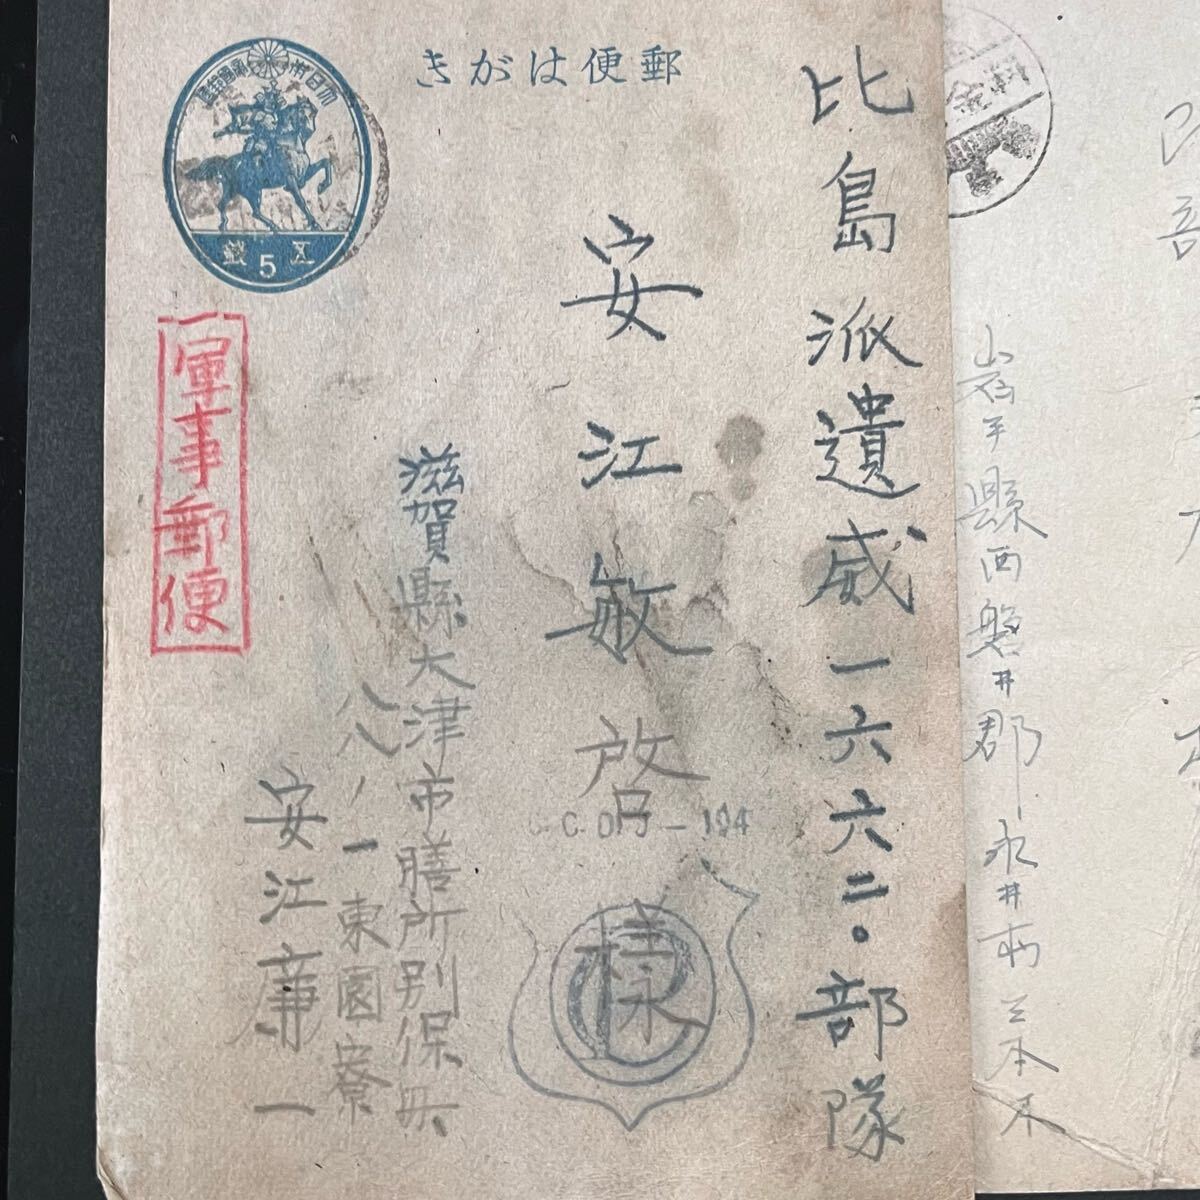 郵便はがき
大日本帝國郵便
五 5 錢
軍事郵便
比島派遺威一六六二〇部隊
安江敏啓様
滋賀縣大津市膳所別保兵
八八ノ一東園寮
安江庸一
岩手縣西磐井郡永井村三本木